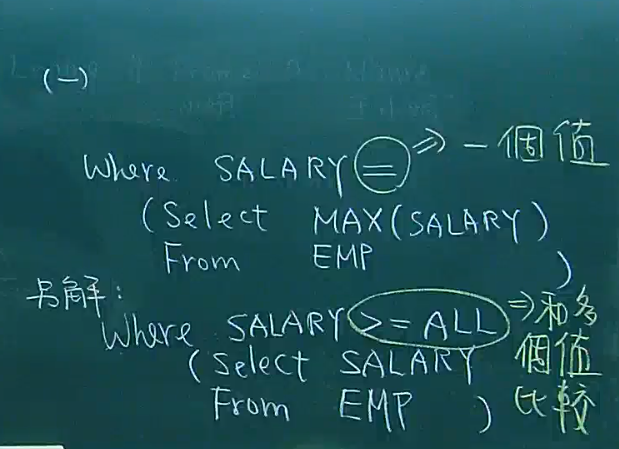 (一)
Where SALARY = ⇒ 一個值
(Select MAX(SALARY)
From EMP )
另解:
Where SALARY >= ALL ⇒ 和多
(Select SALARY 個值
From EMP ) 比較